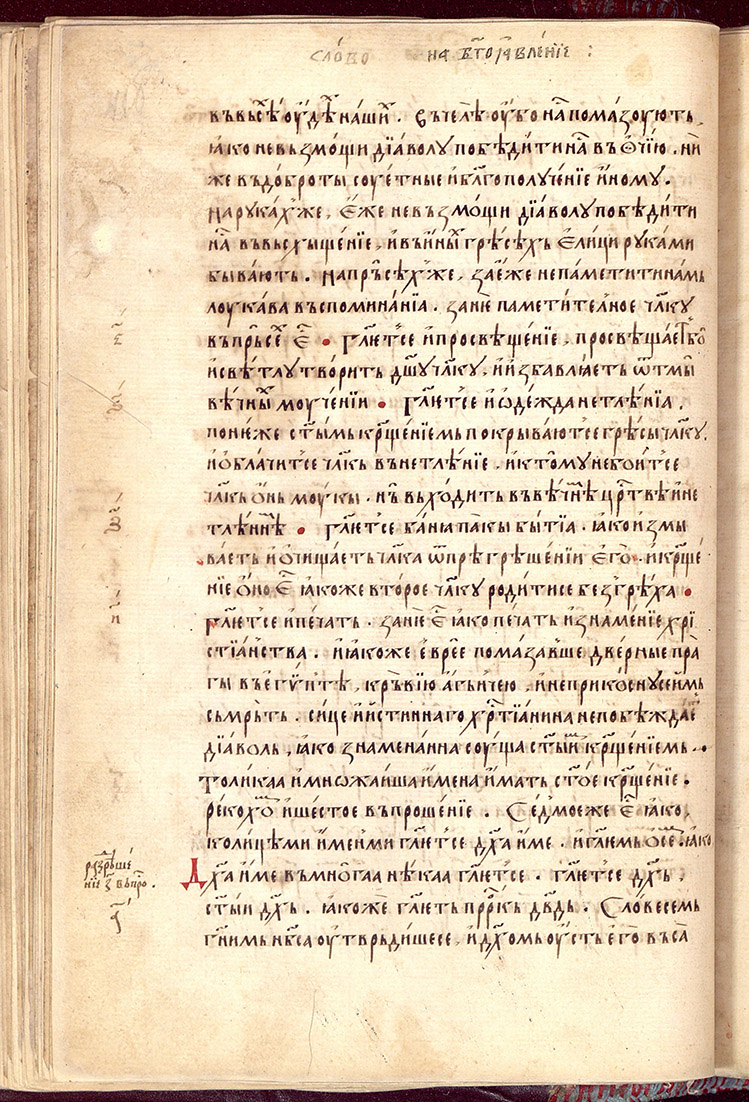 сло́во на бг҃оꙗвле́нїе :
въвьсѣ́ оу҆́дѣ на́ши . въчелѣ̀ оу҆́бо на́ пома́зоуютъ .
ꙗ҆́ко невъзмо́щи дїа́волꙋ побѣди́ти на́ въ ѻ҆чїю . ни
же въдоброты̀ соу́етные и҆ бл҃гополоуче́нїе и҆́номꙋ .
на рꙋка́х же , є҆́же невъзмо́щи дїа́волꙋ побѣди́ти
на́ въ въсхыще́нїе , и҆въ и҆ны́ грѣ́сѣхъ є҆ли́ци рꙋка́ми
быва́ютъ . на прьсѣ́х же , за є҆́же непа́метити на́мь
лоука́ва въспомина́нїа . зани́е па́метител҆ное чл҃кꙋ
въпрьсѣ́ є҆҃ . гл҃ет҆се и҆просвѣще́нїе , просвѣща́еть бо
и҆свѣ́тлꙋ твори́ть дш҃ꙋ чл҃кꙋ , и҆ и҆збавлꙗ́еть ѿ тмы̀
вѣ́чны моуче́нїи . гл҃ет҆се и҆ ѡ҆де́жда нетлѣ́нїа .
поне́же ст҃ы́мь кр҃ще́нїемь покрыва́ют҆се грѣ́сы чл҃кꙋ .
и҆ ѻ҆блачи́т҆се чл҃кь вънетлѣ́нїе . и҆ктомꙋ небои́т҆се
чл҃кь ѻ҆́нь моу́кы . нь въхо́дить въвѣ́чнѣ цр҃твѣ и҆не
тлѣ́ннѣ . гл҃ет҆се ба́нꙗ па́кы бытїа̀ . ꙗ҆́ко и҆змы
ва́еть и҆ ѻ҆чища́еть чл҃ка ѿ прѣгрѣше́нїи є҆го̀ . и҆ кр҃ще́
нїе ѻ҆но̀ є҆҃ ꙗ҆́коже второ́е чл҃кꙋ роди́тисе безгрѣ́ха .
гл҃ет҆се и҆печа́ть . зани́е є҆҃ ꙗ҆́ко печа́ть и҆зна́менїе хрї
стїа́нства . и҆ ꙗ҆́коже є҆вре́е пома́завше две́рные пра́
гы въ є҆гѵ́птѣ , кръвїю а҆́гньчею , и҆неприкоснꙋсе и҆мь
съмрьть . си́це и҆ и҆́стиннаго хр҃тїа́нина непобѣжда́е
дїа́воль , ꙗ҆́ко зна́менана соу́ща ст҃ы́м кр҃ще́нїемь .
толи́каа и҆ мнѡжа́иша и҆мена̀ и҆́мать ст҃о́е кр҃ще́нїе .
реко́хѡ и҆ше́стое въпроше́нїе . Се́дмое же є҆҃ ꙗ҆́ко
коли́цѣми и҆ме́нми гл҃ет҆се дх҃а и҆́ме . и҆ гл҃емь ѻ҆ се́ . ꙗ҆́ко
Дх҃а и҆́ме въмнѡ́гаа нѣ́каа гл҃ет҆се . гл҃ет҆се дх҃ь ,
ст҃ы́и дх҃ь . ꙗ҆́коже гл҃еть пр҃ркь дв҃дь . Сло́весемь
гн҃имь нб҃са оу҆тврьди́шесе , и҆ дх҃омь оу҆́сть є҆го̀ въса̀
разрѣше́
нїе з҃ въпро .